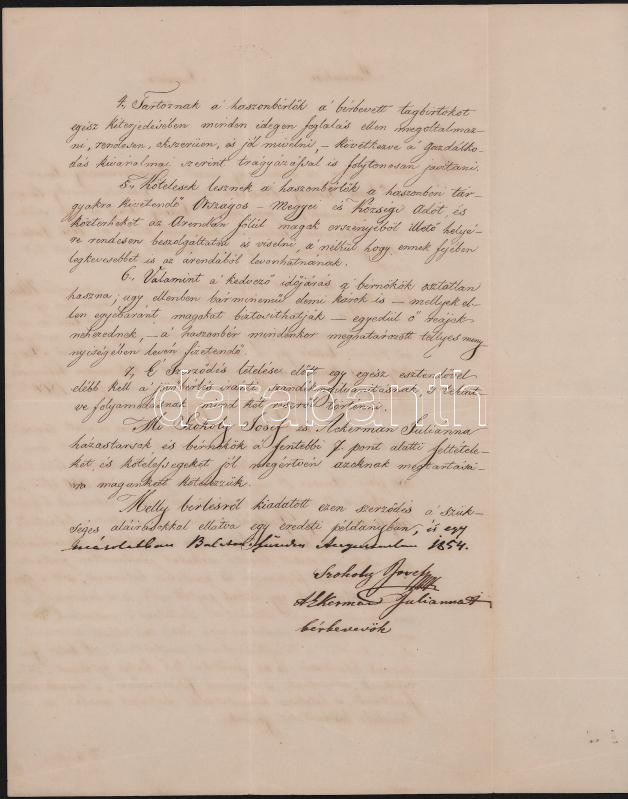 4, Tartoznak a' haszonbérlők a' bérbevett tagbirtokot
egész kiterjedésében minden idegen foglalás ellen megoltalmaz-
ni, rendesen, okszerüen, és jól mivelni, – következve a' gazdálko-
dás kivánalmai szerint trágyázással is folytonosan javitani.
5., Kötelesek lesznek a' haszonbérlők a' haszonbéri tár-
gyakra kivetendő Országos – Megyei és Községi Adót, és
közterheket az Árendán fölül magok erszényéből illető helyé-
re rendesen beszolgáltatni és viselni, a' nélkül hogy ennek fejében
legkevesebbet is az árendából levonhatnának.
6. Valamint a' kedvező időjárás a' bérnökök osztatlan
haszna, ugy ellenben bárminemű elemi károk is – mellyek el-
len egyébaránt magokat biztosithatják – egyedül ő reájok
nehezednek, – a' haszonbér mindenkor meghatározott teljyes meny
nyiségében levén fizetendő.
7, E' Szerződés letelése előtt egy egész esztendővel
elébb kell a' bérlő iránti szándék nyilvánitásnak,
ve folyamodásnak mind két részről történni.
Mi Szokoly Josef és Ackerman Julianna
házastársak és bérnökök a' fentebbi 7. pont alatti feltétele-
ket, és kötelességeket jól megértvén azoknak megtartásá-
ra magunkat kötelezzük.
Melly bérlésről kiadatott ezen szerződés a' szük-
séges aláirásokkal ellátva egy eredeti példányban, és egy
másolatban Balaton 1854.
Szokoly
Akerman Julianna
bérbevevők
darabanth